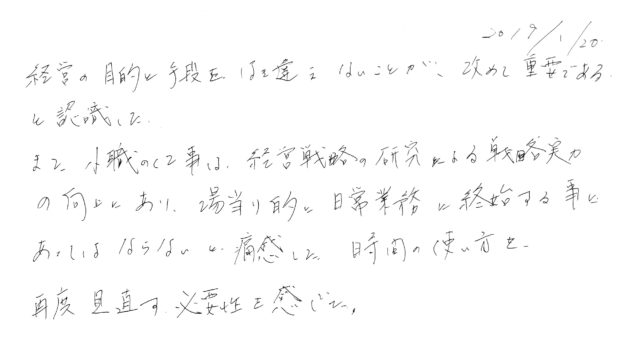 2019/1/20
経営の目的と手段をはき違えないことが、改めて重要である
と認識した。
また、小職の仕事は、経営戦略の研究による戦略実力
の向上にあり、場当り的に日常業務に終始する事に
あってはならないと痛感した。時間の使い方を、
再度見直す必要性を感じた。